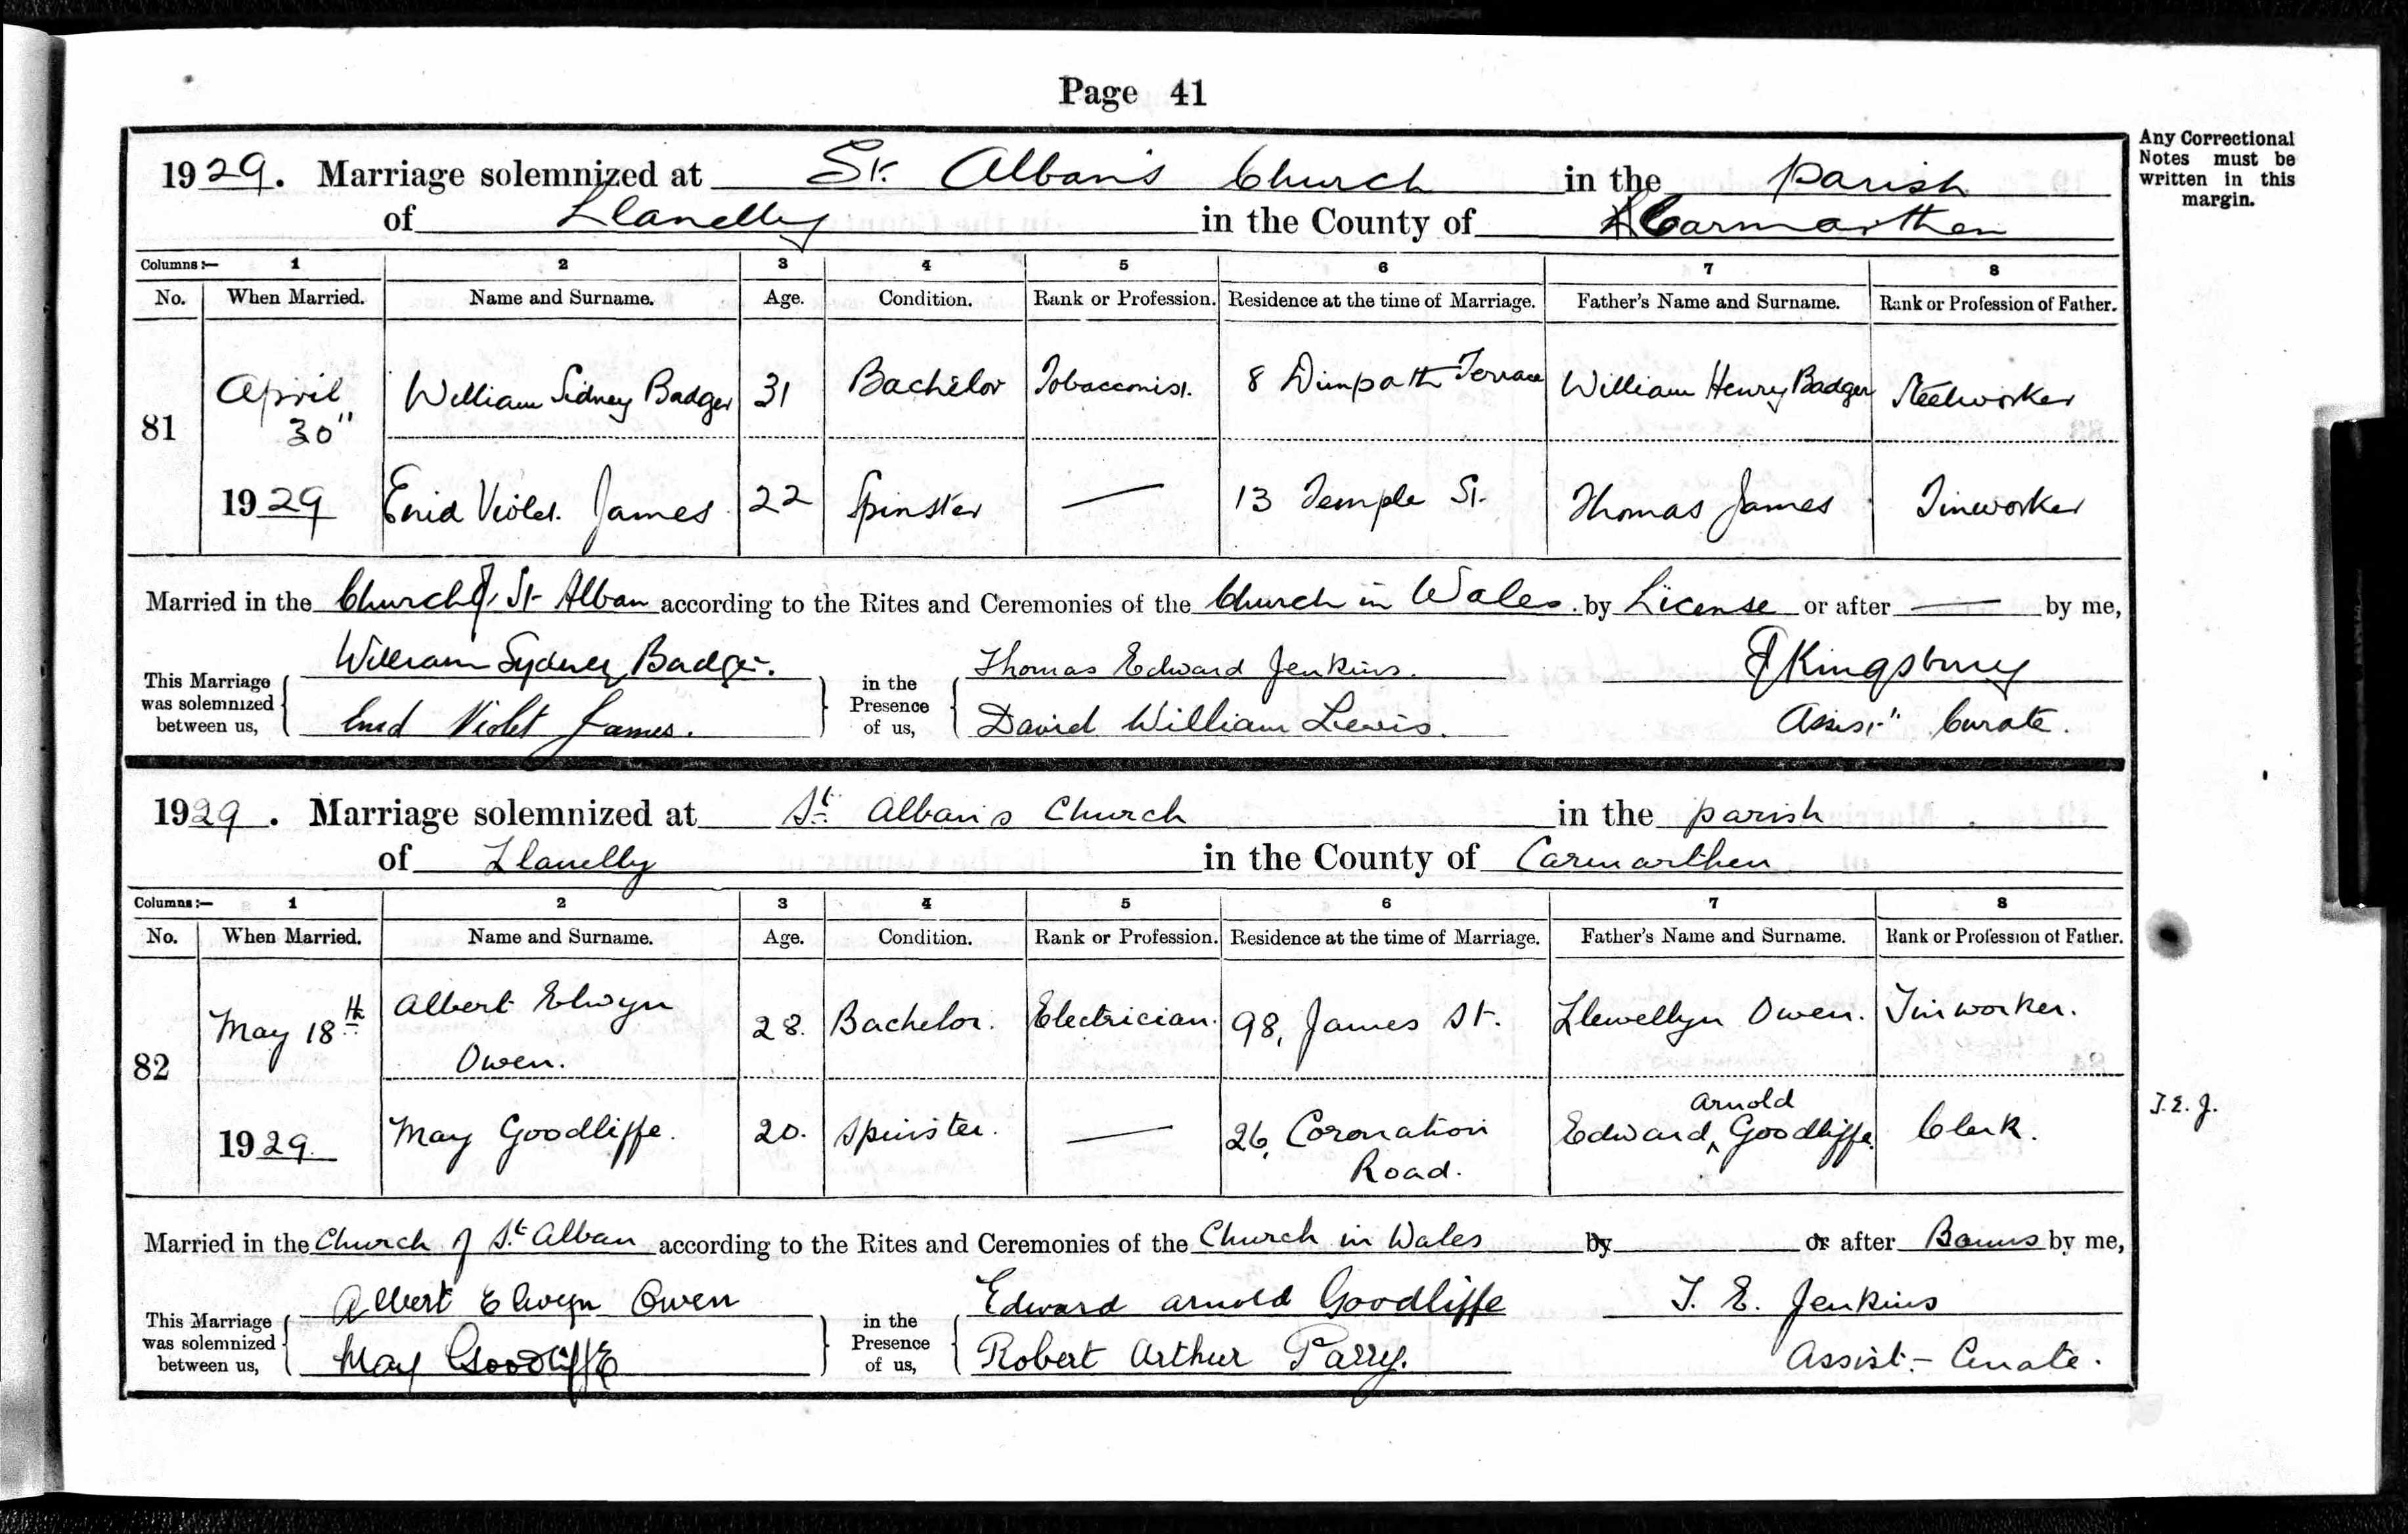 Page 41
Any Correctional
Notes must be
written in this
margin.
1929. Marriage solemnized at St. Alban's Church in the parish
of Llanelly in the County of Carmarthen
Columns:— 1 2 3 4 5 6 7 8
No. When Married. Name and Surname. Age. Condition. Rank or Profession. Residence at the time of Marriage. Father's Name and Surname. Rank or Profession of Father.
81 April 30" 1929 William Sidney Badger 31 Bachelor Tobacconist. 8 Dimpath Terrace William Henry Badger Steelworker
Enid Violet James 22 Spinster — 13 Temple St. Thomas James Tinworker
Married in the Church of St Alban according to the Rites and Ceremonies of the Church in Wales. by License or after — by me,
This Marriage
was solemnized
between us,
William Sydney Badger.
Enid Violet James.
in the
Presence
of us,
Thomas Edward Jenkins.
David William Lewis.
Kingsbury
Assist" Curate.
1929. Marriage solemnized at St. Alban's Church in the parish
of Llanelly in the County of Carmarthen
Columns:— 1 2 3 4 5 6 7 8
No. When Married. Name and Surname. Age. Condition. Rank or Profession. Residence at the time of Marriage. Father's Name and Surname. Rank or Profession of Father.
82 May 18th 1929. Albert Elwyn Owen. 28. Bachelor. Electrician. 98, James St. Llewellyn Owen. Tinworker.
May Goodliffe. 20. Spinster. — 26, Coronation Road. Edward Arnold Goodliffe. Clerk.
T.E.J.
Married in the Church of St. Alban according to the Rites and Ceremonies of the Church in Wales by or after Banns by me,
This Marriage
was solemnized
between us,
Albert Elwyn Owen
May Goodliffe
in the
Presence
of us,
Edward Arnold Goodliffe
Robert Arthur Parry.
T. E. Jenkins
Assist.- Curate.